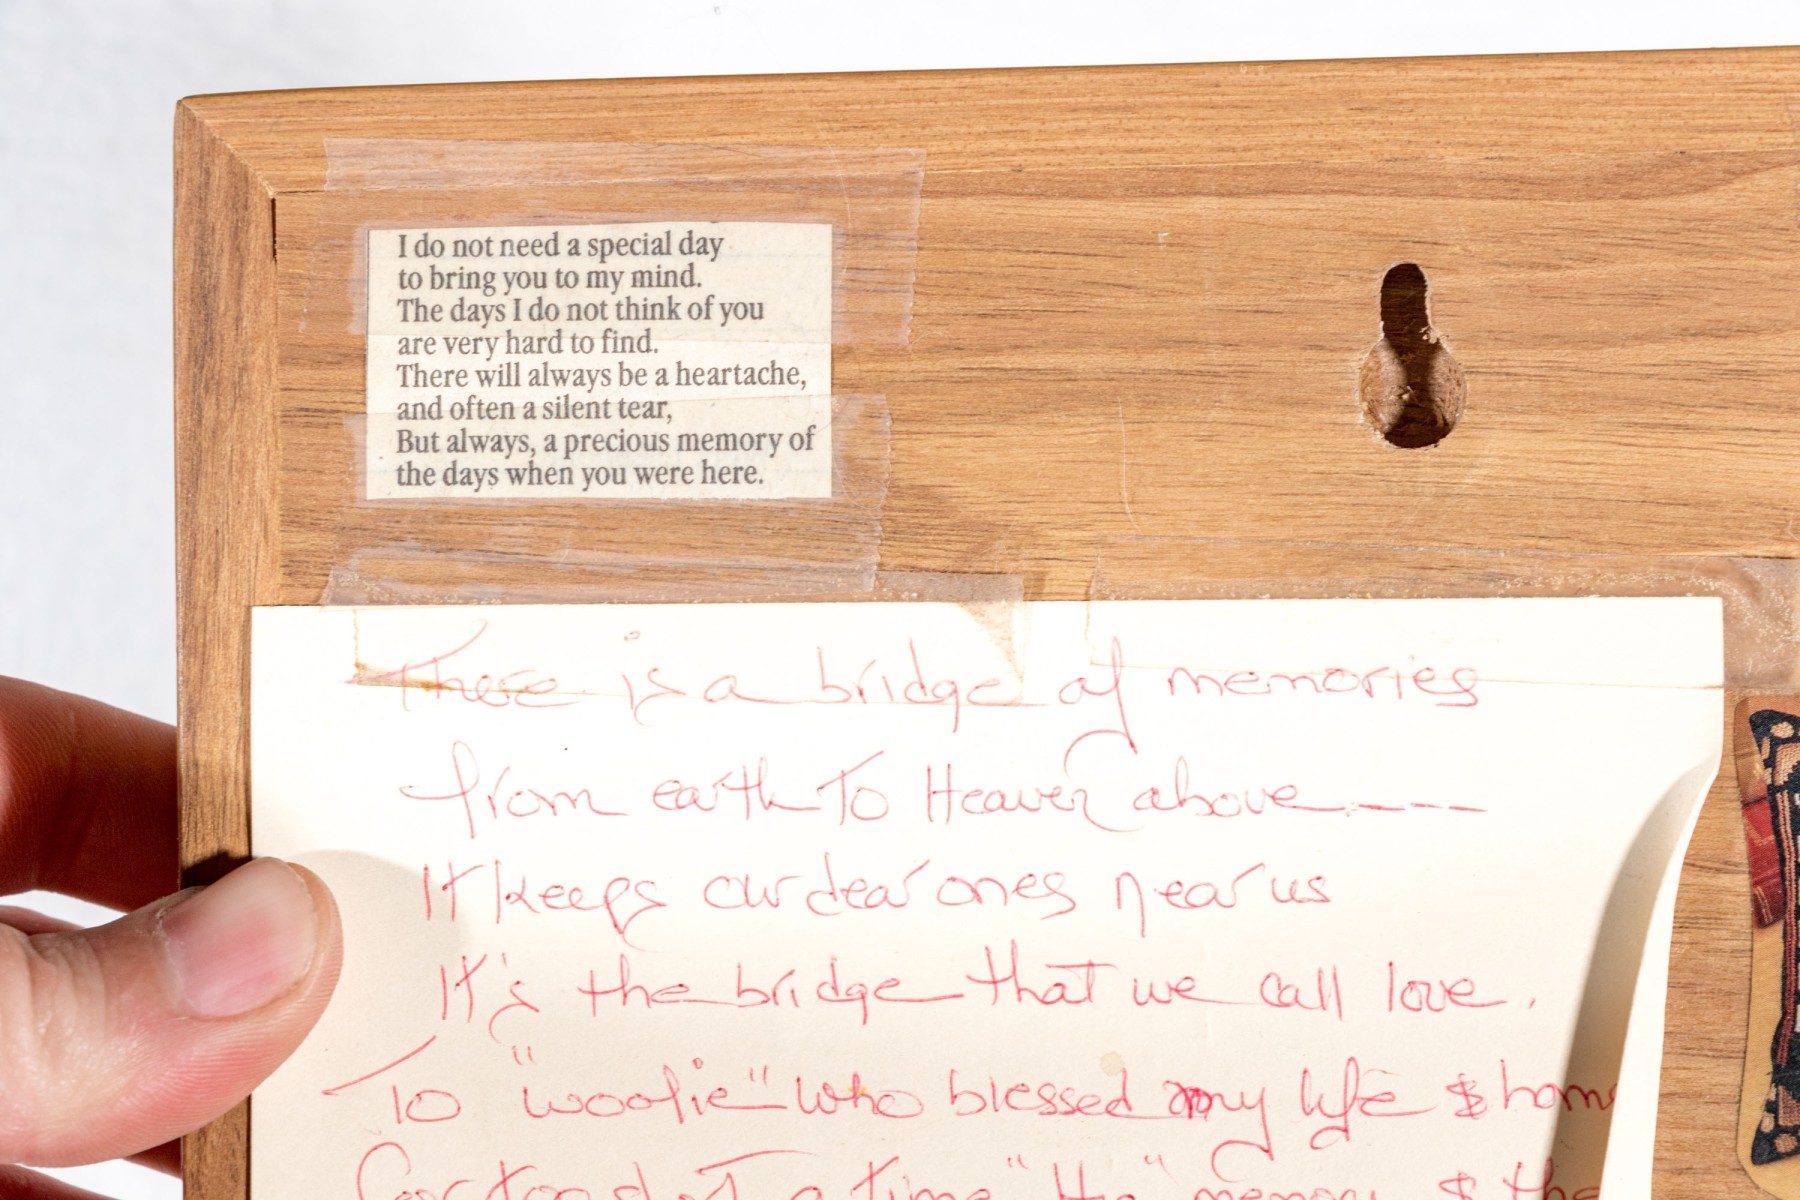 I do not need a special day
to bring you to my mind.
The days I do not think of you
are very hard to find.
There will always be a heartache,
and often a silent tear,
But always, a precious memory of
the days when you were here.
There is a bridge of memories
from earth To Heaven above----
It keeps our dear ones near us
It's the bridge that we call love.
To "woofie" who blessed my life & home
a time memory & the